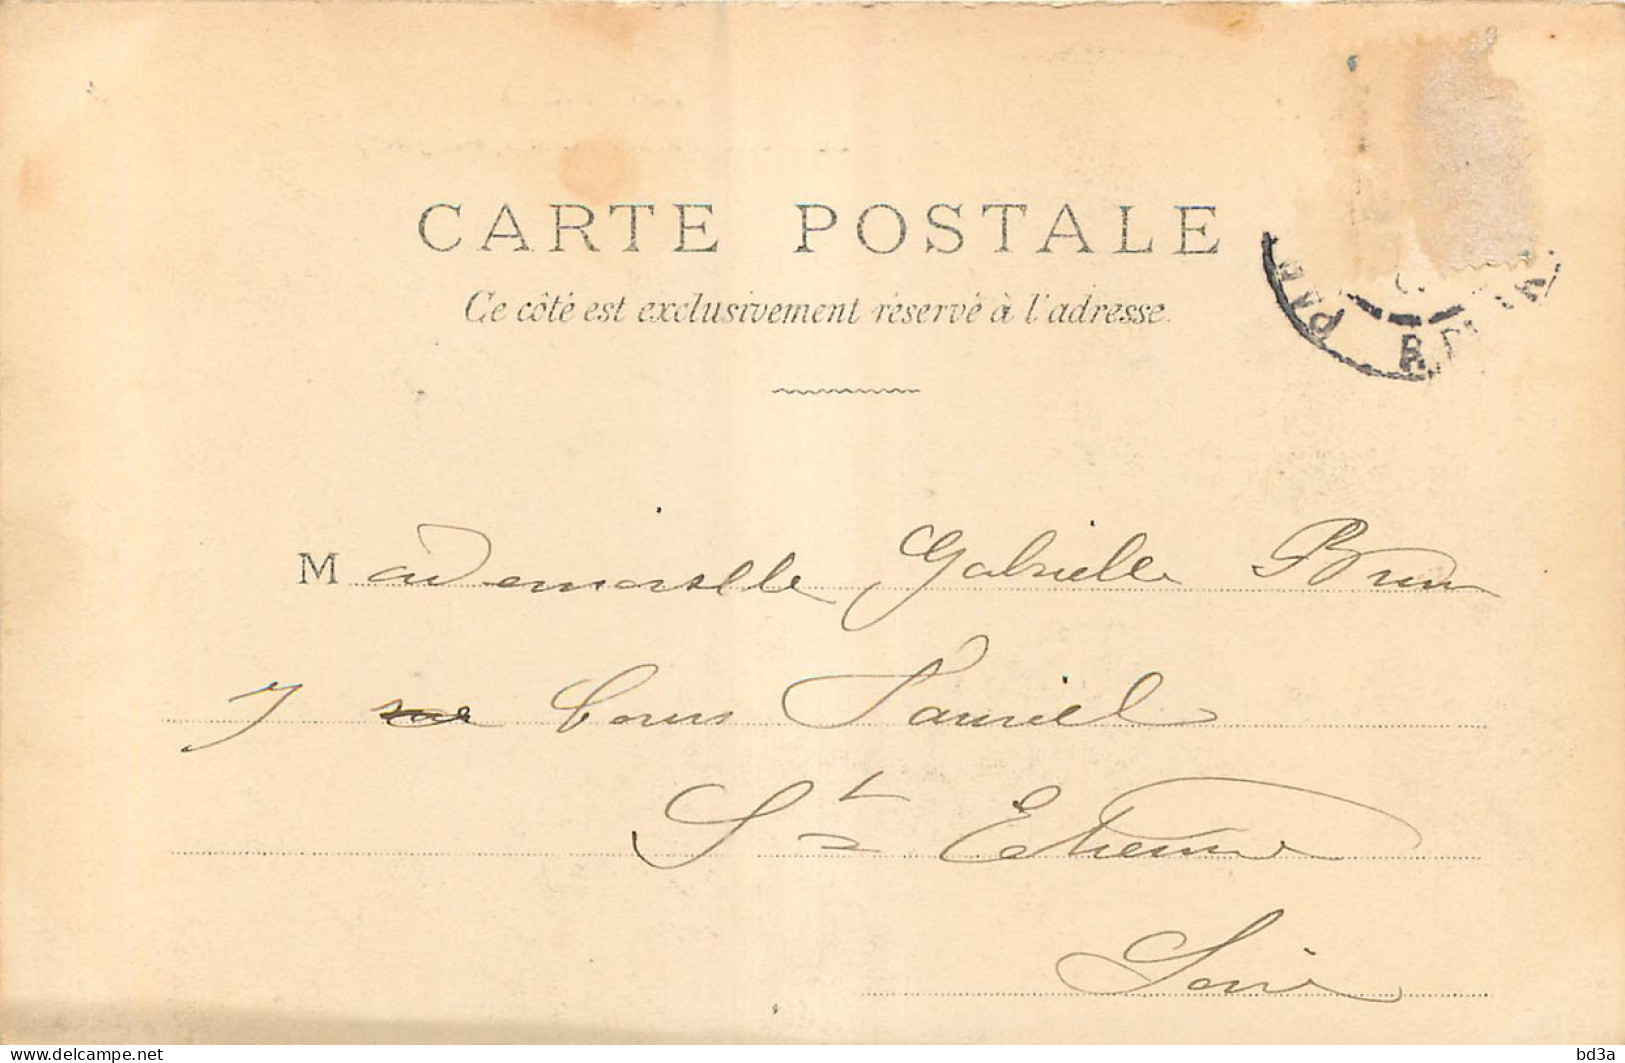 CARTE POSTALE
Ce côté est exclusivement réservé à l'adresse.
Mademoiselle Gabrielle Brun
7 rue Cours Fauriel
St Etienne
Loire
delcampe.net
bd3a